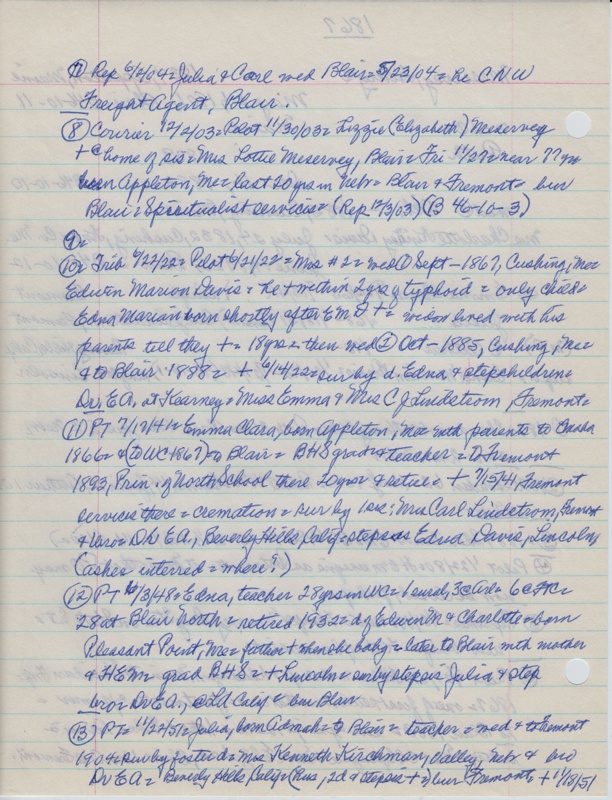 1867
⑦ Rep 6/2/04 = Julia & Carl wed Blair = 5/23/04 = he C NW
Freight Agent, Blair.
⑧ Courier 12/2/03 = Pilot 11/30/03 = Lizzie (Elizabeth) Meservey
+ @ home of sis = Mrs Lottie Meservey, Blair = Fri 11/27 = near 77 yrs
Appleton, Me = last 20 yrs in Nebr = Blair & Fremont = bur
Blair = Spiritualist services = (Rep 12/3/03) (B 46-10-3)
⑨ =
⑩ = Trib 6/22/22 = Pilot 6/21/22 = Mrs #2 = wed ① Sept - 1867, Cushing, Me =
Edwin Marion Davis = he + within 2 yrs of typhoid = only child =
Edna Marian born shortly after E M D + = widow lived with his
parents till they + = 18 yrs = then wed ② Oct - 1885, Cushing, Me =
& to Blair 1888 = + 6/14/22 = sur by d. Edna & stepchildren =
Dr. E A, at Kearney = Miss Emma & Mrs C J Lindstrom, Fremont =
⑪ PT 7/17/41 = Emma Clara, born Appleton, Me = with parents to Omaha
1866 & (to WC 1867) to Blair = BHS grad & teacher = to Fremont
1893, Prin. of North School there 20 yrs & retired = + 7/15/41, Fremont
services there = cremation = sur by 1 sis, Mrs Carl Lindstrom, Fremont
& bro = Dr E A, Beverly Hills, Calif = stepsis Edna Davis, Lincoln,
(ashes interred = where?)
⑫ PT 6/3/48 = Edna, teacher 28 yrs in WC = 1 rural, 3 @ Arl = 6 @ FtC =
28 at Blair North = retired 1932 = d of Edwin M & Charlotte = born
Pleasant Point, Me = father + when she baby = later to Blair with mother
& HEM = grad BHS = + Lincoln = sur by stepsis Julia & step
bro = Dr E A, @ Calif = bur Blair
⑬ PT = 11/22/51 = Julia, born Admah = to Blair = teacher = wed & to Fremont
1904 = sur by foster d = Mrs Kenneth Kirchman, Valley, Nebr & bro
Dr E A = Beverly Hills, Calif = (Hus, 2d & stepsis + =) bur Fremont = + 11/18/51